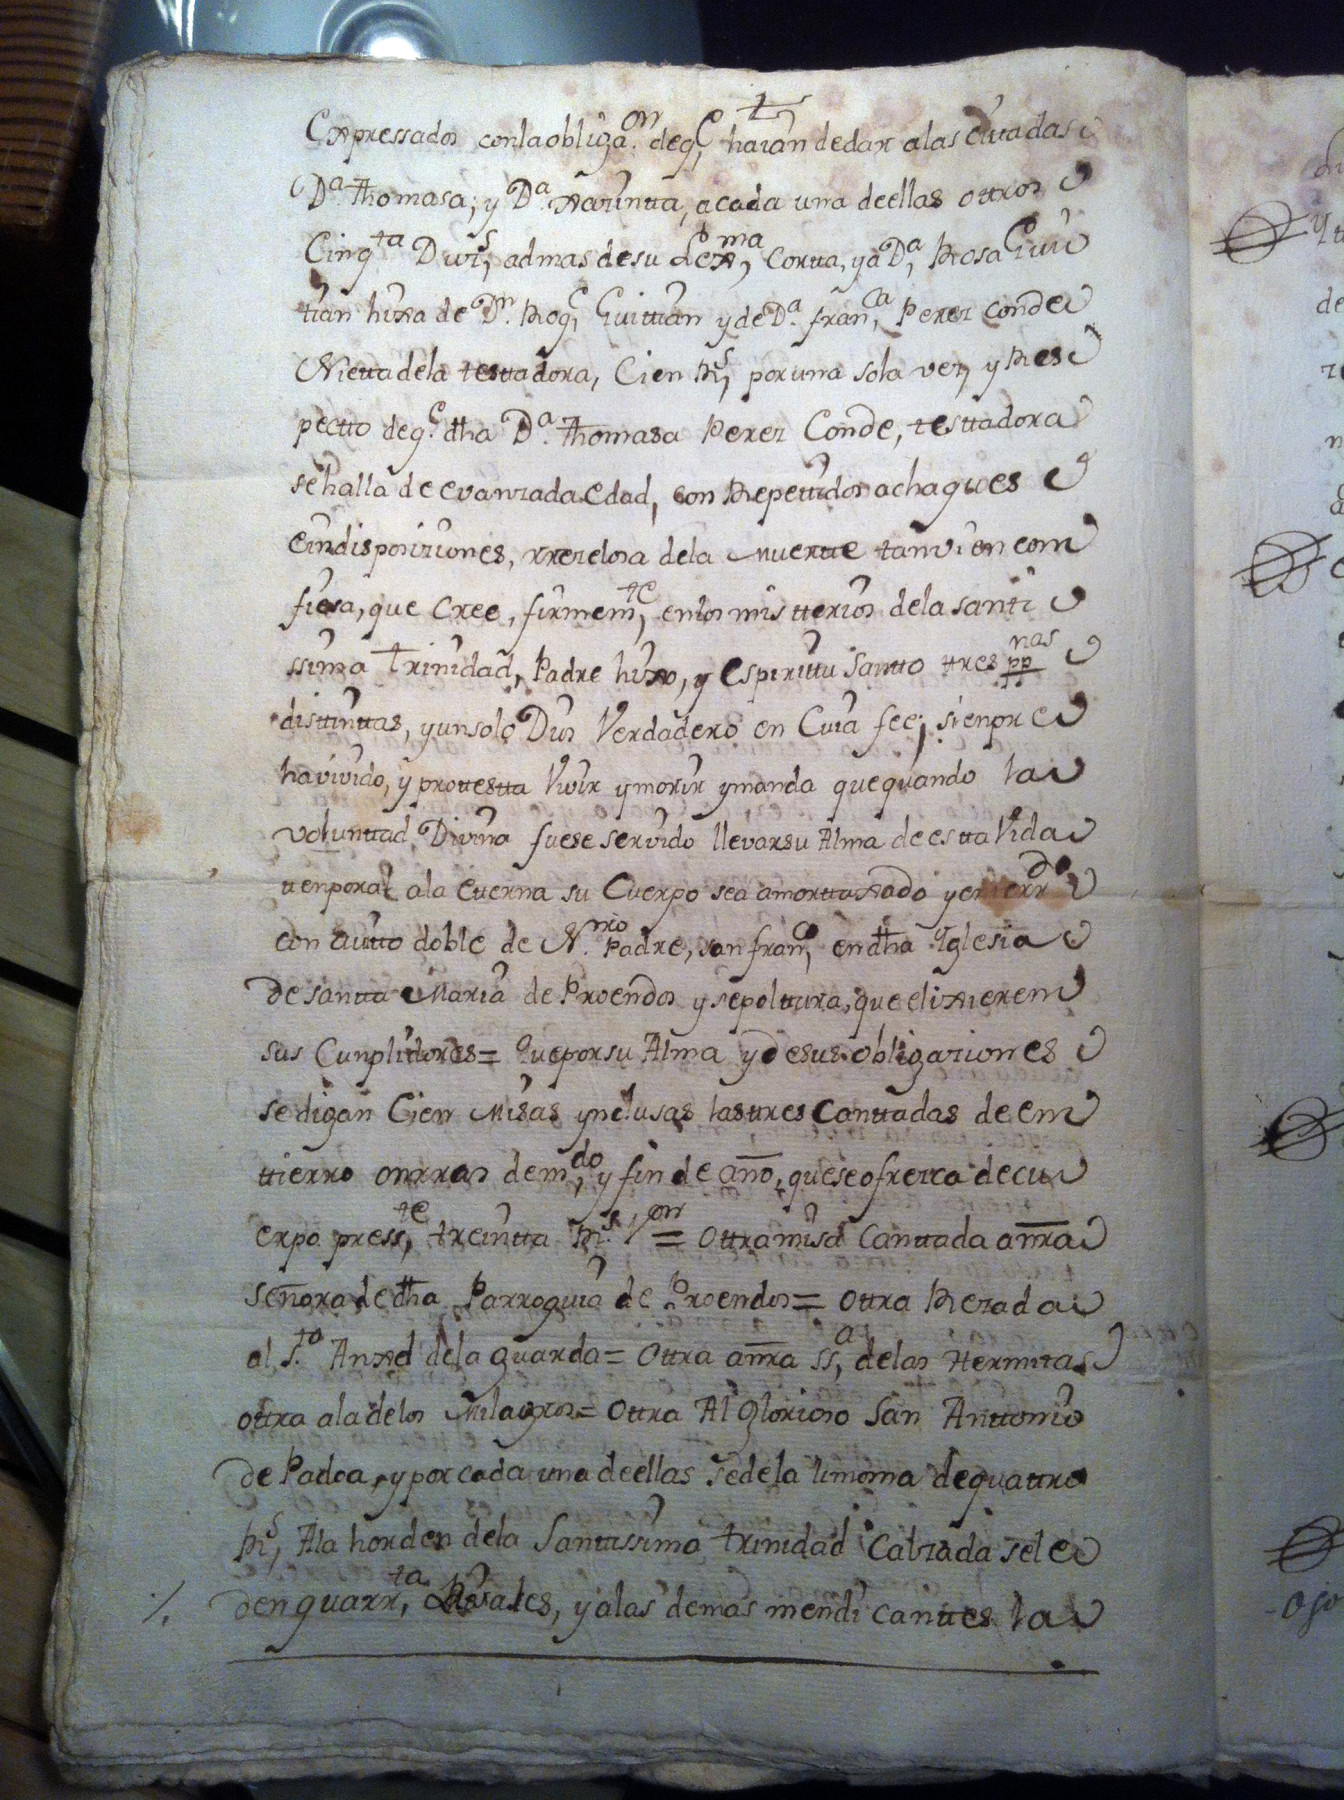 Expressados con la obligaon. de qe, harán de dar a las citadas
Da. Thomasa; y Da. Xacintta, a cada una de ellas ottros
Cinqta Ducs, admas de su Lexma, Cortta, y a Da, Rosa Guit
tian hixa de Dn. Roqe, Guittian y de Da. franca, Perez Conde
Nietta de la testtadora, Cien Rs, por una sola vez, y Res
pectto de qe. dha Da. Thomasa Perez Conde, testtadora
se halla de evanzada Edad, con Repettidos achaques
e indisposiziones, rrezelosa de la Muertte tanvien com
fiesa, que cree, firmemte, en los mistterios de la santi
ssima trinidad, Padre hixo, y espirittu Santto ttres ppnas
disttinttas, y un solo Dios Verdadero en Cuia fee, sienpre
ha vivido, y protestta Vivir y morir y manda que quando la
volunttad Divina fuese servido llevar su Alma de estta Vida
ttenporal a la etterna su Cuerpo sea amorttaxado y enterrdo
con avitto doble de N.ro Padre, san franco, en dha Yglesia
de santta Maria de Proendos y sepolttura, que elixierem
sus Cunplidores = Que por su Alma y de sus obligaziones
se digan Cien Misas ynclusas las ttres Canttadas de em
ttierro onrras de mdo, y fin de año, que se ofrezca de cu
erpo presste, treintta Rs. Von = Ottra misa Canttada a nra
señora de dha Parroquia de Proendos = Ottra Rezada
al Sto. Anxel de la guarda = Ottra a nra ssa, de las Hermitas
ottra a la de los Milagros = Ottra Al Glorioso San Anttonio
de Padoa, y por cada una de ellas se de la limosna de quattro
Rs, A la horden de la Santissima trinidad Calzada se le
den quarrta, Reales, y a las demas mendicanttes la
Ojo